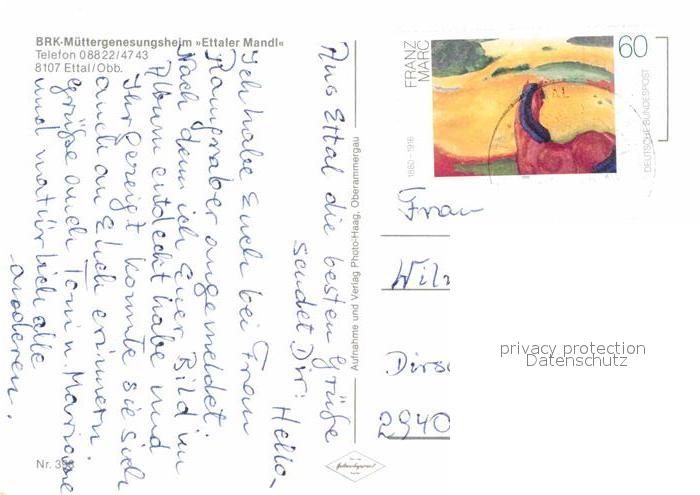 BRK-Müttergenesungsheim »Ettaler Mandl«
Telefon 08822/4743
8107 Ettal/Obb.
Aus Ettal die besten Grüße
sendet Dir: Hello-
Ich habe Euch bei Frau
angemeldet.
Nach dem ich Euer Bild im
Album entdeckt habe und
Ihr gezeigt konnte sie sich
auch an Euch erinnern.
Grüße auch Toni u. Marianne
und natürlich alle
anderen.
Nr. 
Aufnahme und Verlag Photo-Haag, Oberammergau
FRANZ
MARC
1880-1916
60
DEUTSCHE BUNDESPOST
Frau
2940
privacy protection
Datenschutz